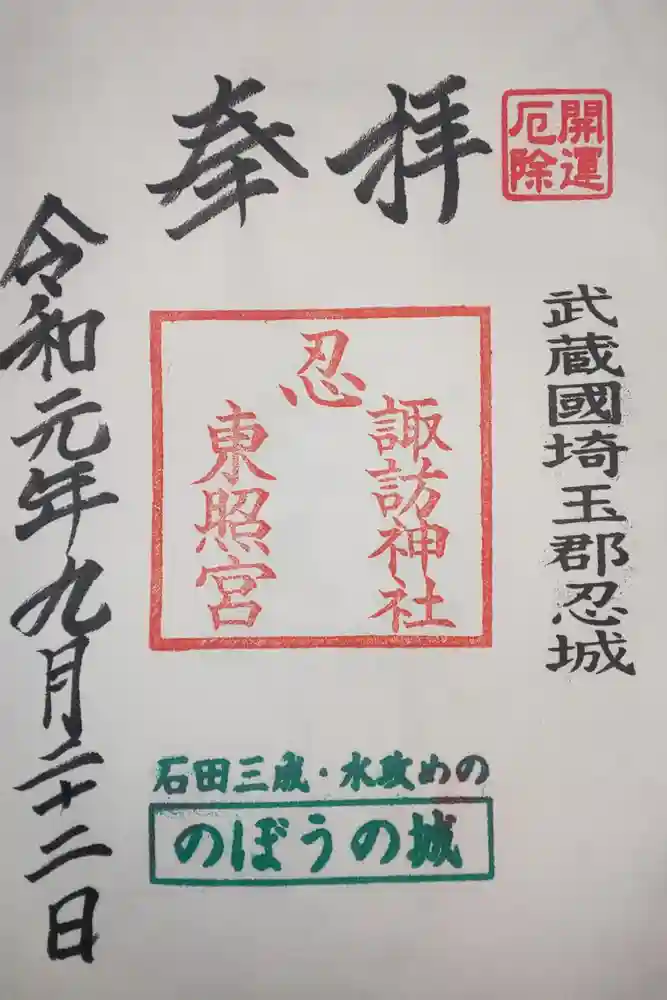 開運
厄除
奉拝
武蔵國埼玉郡忍城
忍
諏訪神社
東照宮
令和元年九月二十二日
石田三成・水攻めの
のぼうの城